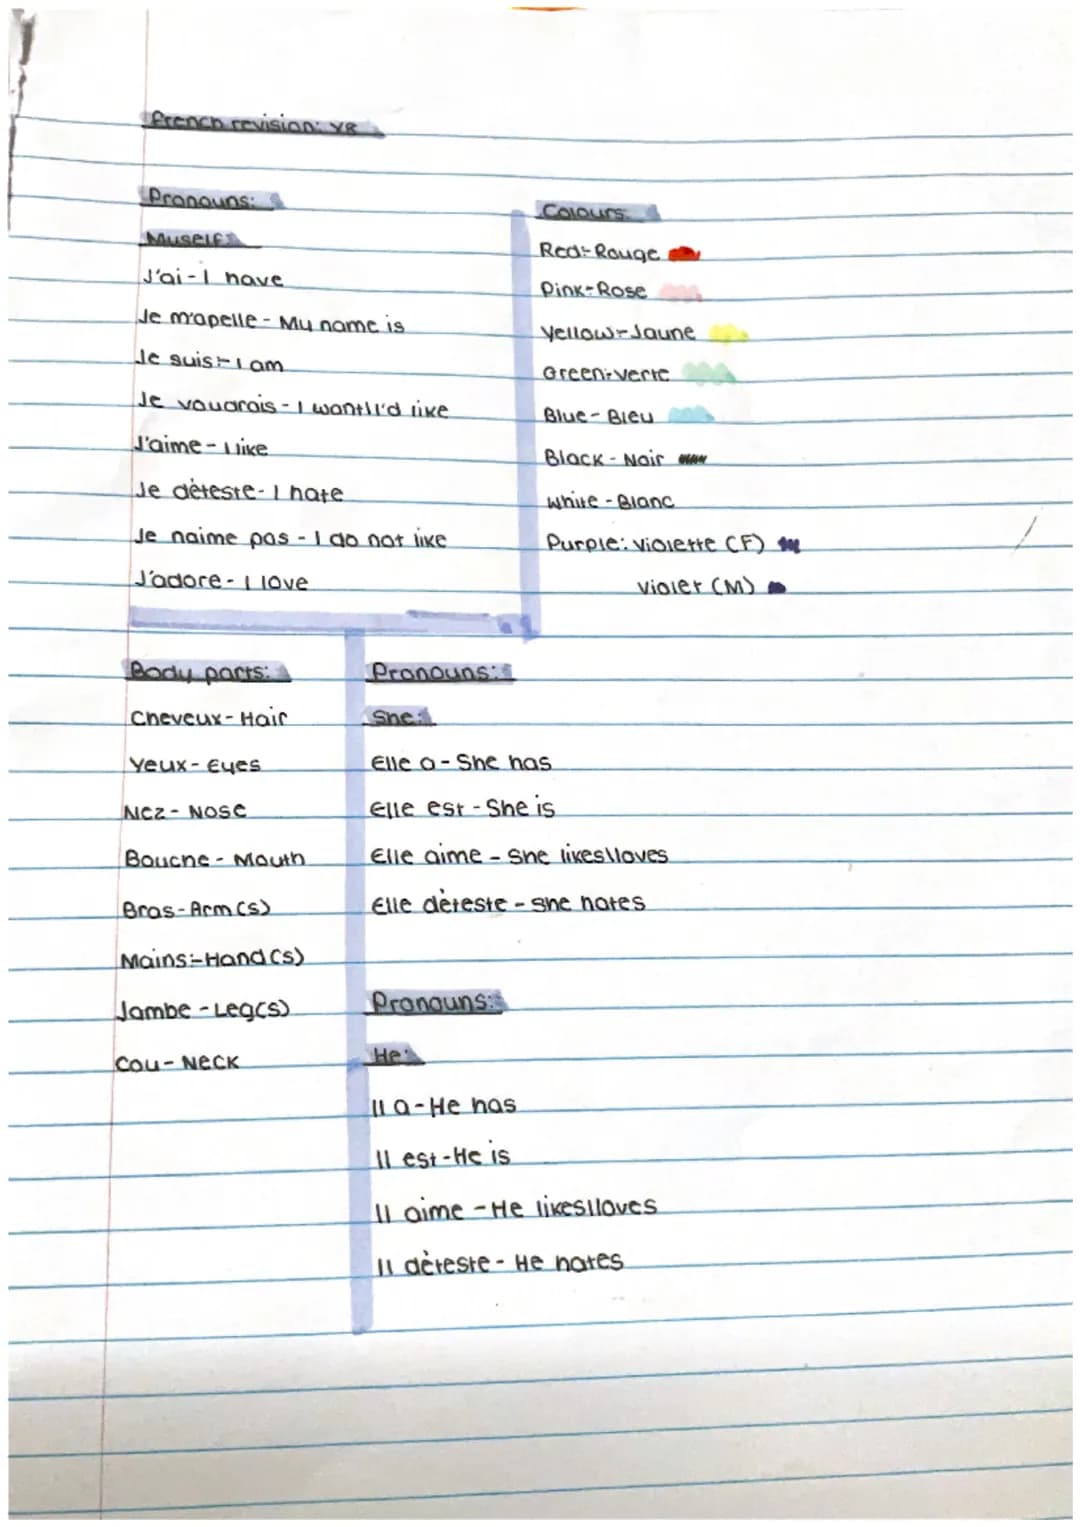 French revision: Y8
Pronouns:
Myself:
J'ai - I have
Je m'apelle - My name is
Je suis - I am
Je voudrais - I want\I'd like
J'aime - I like
Je dèteste - I hate
Je naime pas - I do not like
J'adore - I love
Colours:
Red - Rouge
Pink - Rose
Yellow - Jaune
Green - verte
Blue - Bleu
Black - Noir
White - Blanc
Purple: violette (F)
violet (M)
Body parts:
Cheveux - Hair
Yeux - Eyes
Nez - Nose
Bouche - Mouth
Bras - Arm(s)
Mains - Hand(s)
Jambe - Leg(s)
Cou - Neck
Pronouns:
She:
Elle a - She has
Elle est - She is
Elle aime - She likes\loves
Elle dèteste - She hates
Pronouns:
He:
Il a - He has
Il est - He is
Il aime - He likes\loves
Il dèteste - He hates